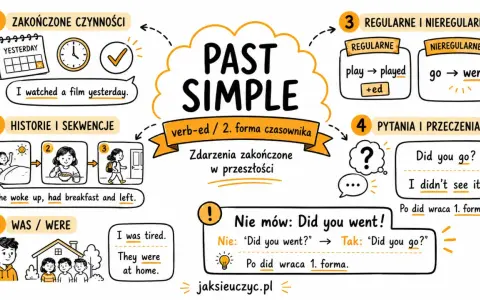 PAST
SIMPLE
verb-ed / 2. forma czasownika
Zdarzenia zakończone
w przeszłości
ZAKOŃCZONE CZYNNOŚCI
YESTERDAY
I watched a film yesterday.
HISTORIE I SEKWENCJE
2
3
woke up, had breakfast and left.
WAS / WERE
I was tired.
They were
at home.
3 REGULARNE I NIEREGULARNE
REGULARNE
play → played
+ed
NIEREGULARNE
go →
4 PYTANIA I PRZECZENIA
?
Did you go?
I didn't see it
Po did wraca 1. form
! Nie mów: Did you went!
Nie: "Did you went?" → Tak: "Did you go?"
Po did wraca 1. forma.
jaksieuczyc.pl